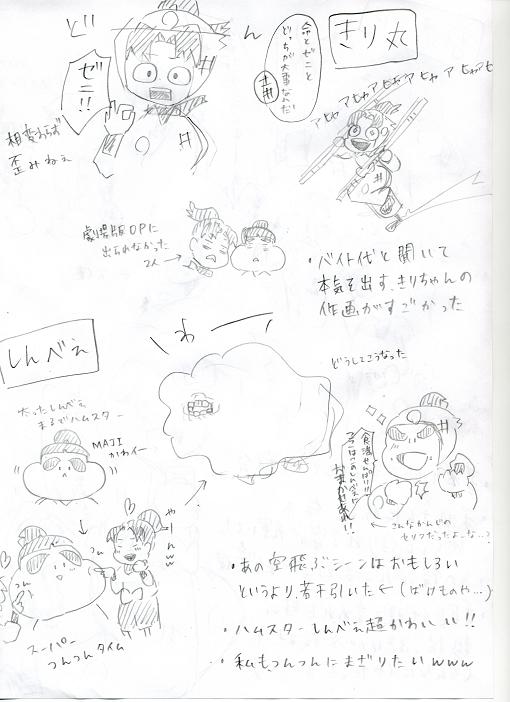 きり丸
ど
ん
命とゼニと
どっちが大事なんだ!
土井
ゼニ!!
相変わらず
歪みねぇ
アヒャアヒャアヒャアヒャアヒャ
劇場版OPに
出られなかった
2人→
・バイト代と聞いて
本気を出す、きりちゃんの
作画がすごかった
しんべヱ
太ったしんべヱ
まるでハムスター
MAJI
かわイー
わーー
どうしてこうなった
おまかせあれ!!
こんなかんじの
セリフだったよーな…?
つん
つん
やーんww
スーパー
つんつんタイム
・あの空飛ぶシーンはおもしろい
というより、若干引いた←(ばけものや…)
・ハムスターしんべヱ超かわいい!!
・私も、つんつんにまざりたいwww